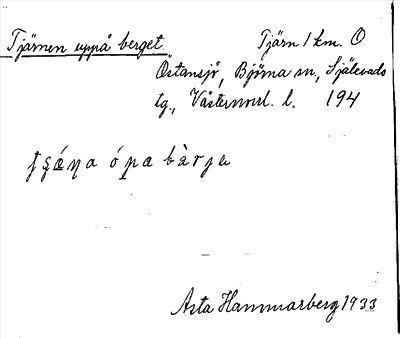 Tjärnen uppå berget. Tjärn 1 km. O
Östansjö, Björna sn, Själevads
tg., Västernorrl. l. 194
ó̱pa bàrja
Asta Hammarberg 1933